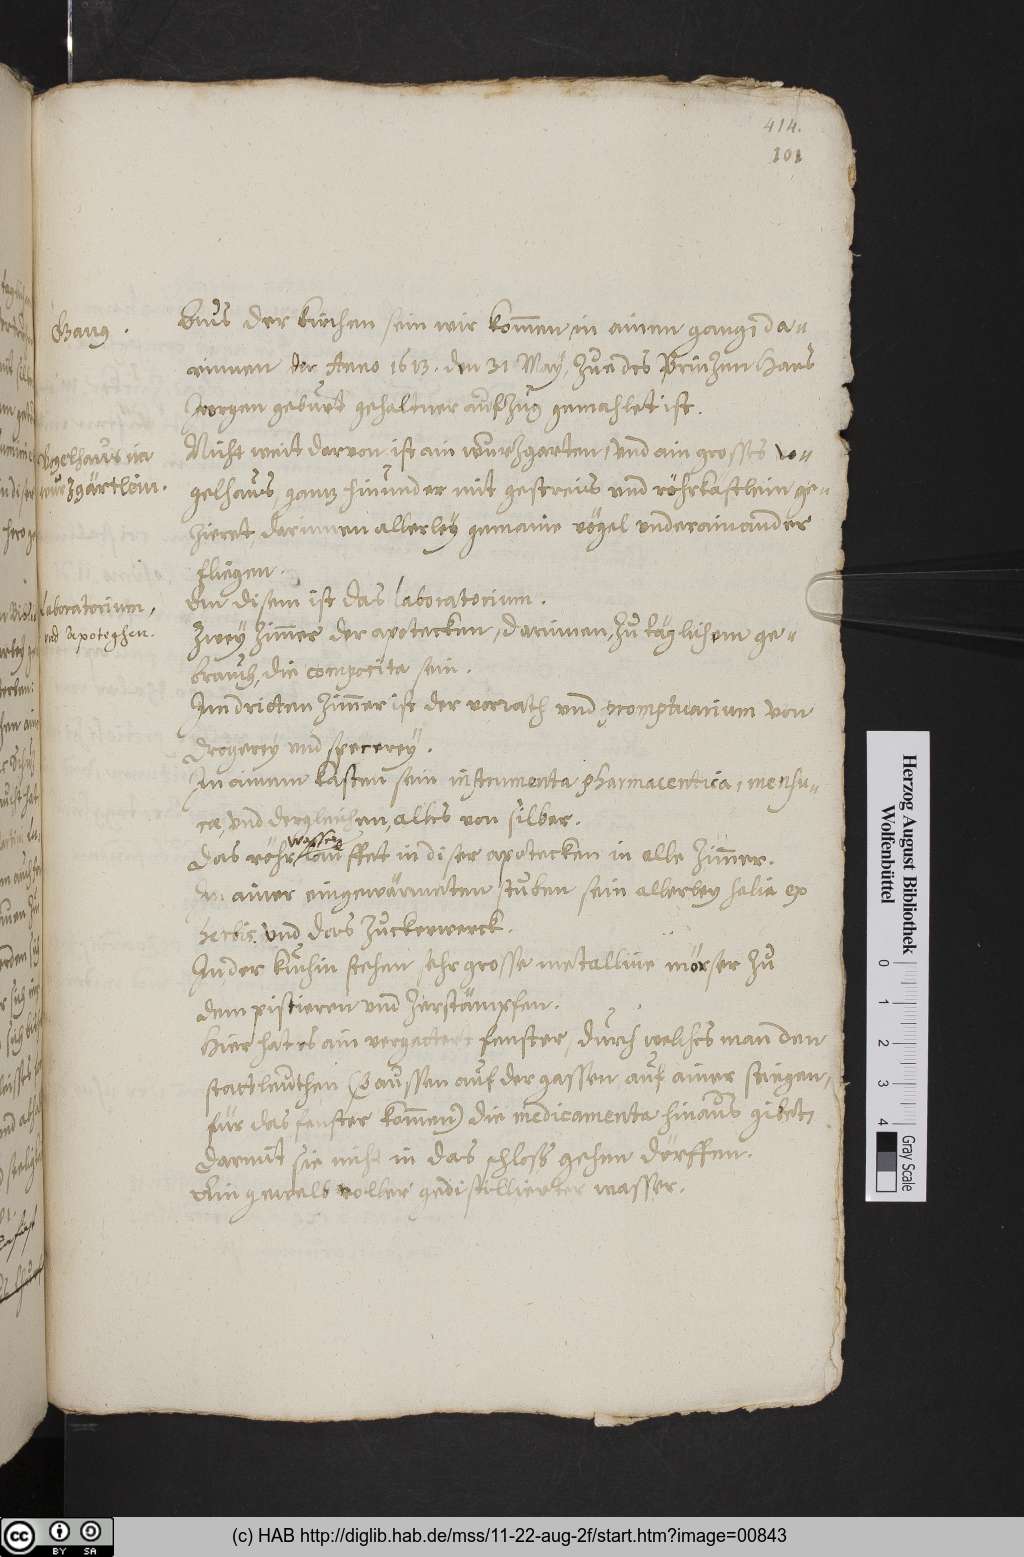 414.
101
Gang.
Aus der kirchen sein wir kommen, in ainen gang, da-
rinnen der Anno 1613. den 31 May, zue des Printzen Hans
Jeorgen geburt gehaltner aufzug gemahlet ist.
Vogelhaus im
wurzgärtlein.
Nicht weit darvon ist ain wurzgarten, vnd ain grosses vo-
gelhaus ganz hinunder mit gestreis vnd röhrkästlein ge-
zieret, darinnen allerley gemaine vögel vnderainander
fliegen.
Laboratorium,
vnd Apoteghen.
An disem ist das Laboratorium.
Zwey zimmer der apotecken, darinnen, zu täglichem ge-
brauch, die composita sein.
Im dritten zimmer ist der vorrath vnd promptuarium von
drogerey vnd specerey.
In ainem kasten sein instrumenta pharmaceutica, mensu-
ra, vnd dergleichen, alles von silber.
wasser
Das röhr lauffet in diser apotecken in alle zimmer.
In ainer eingewärmeten stuben sein allerley salia ex
herbis vnd das zuckerwerck.
In der kuchin stehen sehr grosse metalline mörser zu
dem pistieren vnd zerstämpfen.
Hier hat es ain vergattert fenster, durch welches man den
stattleuthen (daussen auf der gassen auf ainer stiegen,
für das fenster kommen) die medicamenta hinaus gibet,
darmit sie nicht in das schloss gehen dörffen.
Ain gewelb voller gedistillierter wasser.
Herzog August Bibliothek
Wolfenbüttel
0 1 2 3 4
Gray Scale
cc BY SA
(c) HAB http://diglib.hab.de/mss/11-22-aug-2f/start.htm?image=00843